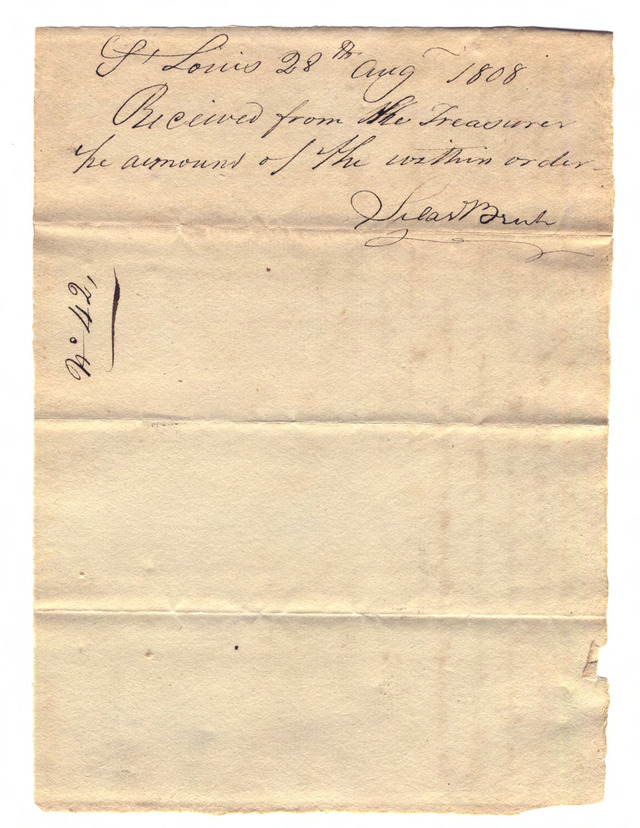 St Louis 28th Augt 1808
Received from the Treasurer
the amount of the within order
Silas Bent
No 42,